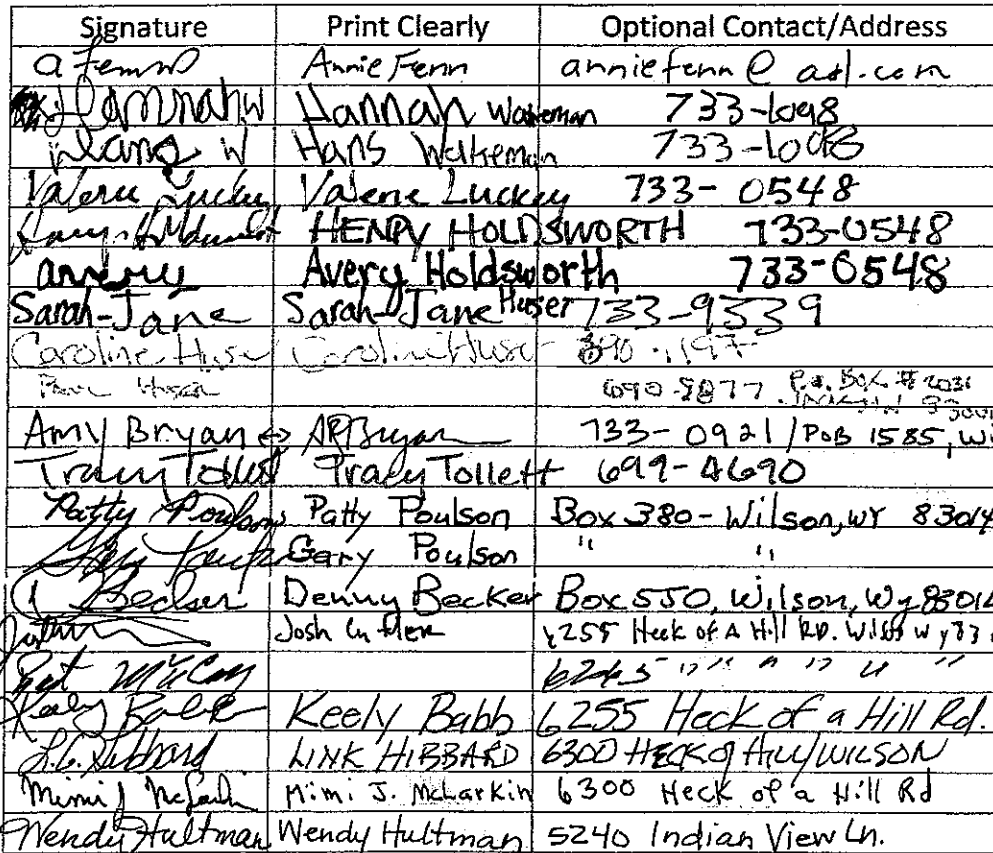 Signature Print Clearly Optional Contact/Address
a Fenn Annie Fenn anniefenn@aol.com
Hannah W Hannah Wakeman 733-1098
Hans W Hans Wakeman 733-1098
Valerie Luckey Valerie Luckey 733-0548
HENRY HOLDSWORTH 733-0548
avery Avery Holdsworth 733-0548
Sarah-Jane Sarah-Jane Huser 733-9339
Caroline Huser Caroline Huser
P.O. Box # 2031
Amy Bryan ARBryan 733-0921/POB 1585, Wi
Tracy Tollett Tracy Tollett 699-4690
Patty Poulson Patty Poulson Box 380-Wilson, WY 83014
Gary Poulson " "
Becker Denny Becker Box 550, Wilson, Wy 83014
Josh 6255 Heck of A Hill RD. Wilson Wy 83
McCoy 6245 " " " " " "
Keely Babb Keely Babb 6255 Heck of a Hill Rd.
L.C. Hibbard LINK HIBBARD 6300 HECK of HILL/WILSON
Mimi J McLarkin Mimi J. McLarkin 6300 Heck of a Hill Rd
Wendy Hultman Wendy Hultman 5240 Indian View Ln.